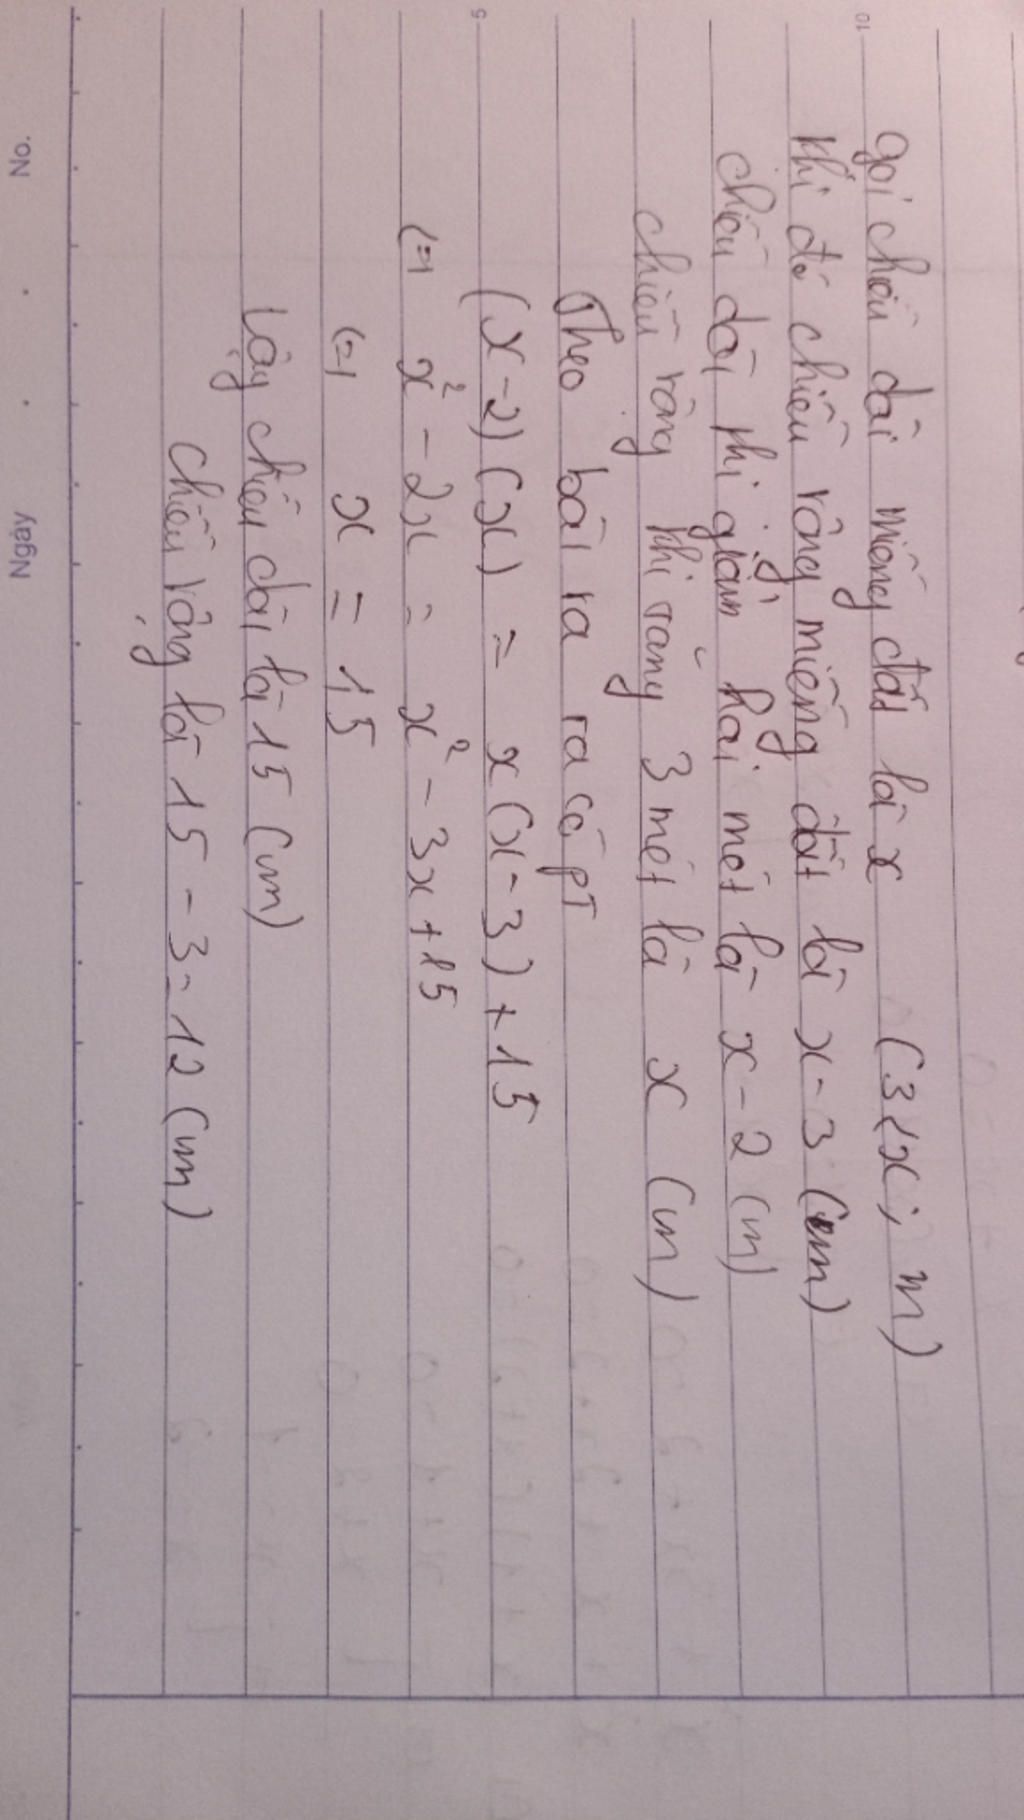 10
gọi chiều dài miếng đất là x (3<x; m)
khi đó chiều rộng miếng đất là x-3 (m)
chiều dài khi giảm hai mét là x-2 (m)
chiều rộng khi tăng 3 mét là x (m)
Theo bài ra ra có pt
5
(x-2)(x) = x(x-3)+15
(=) x² - 2x = x² - 3x+15
(=) x = 15
Vậy chiều dài là 15 (m)
chiều rộng là 15-3=12 (m)
No. Ngày . .